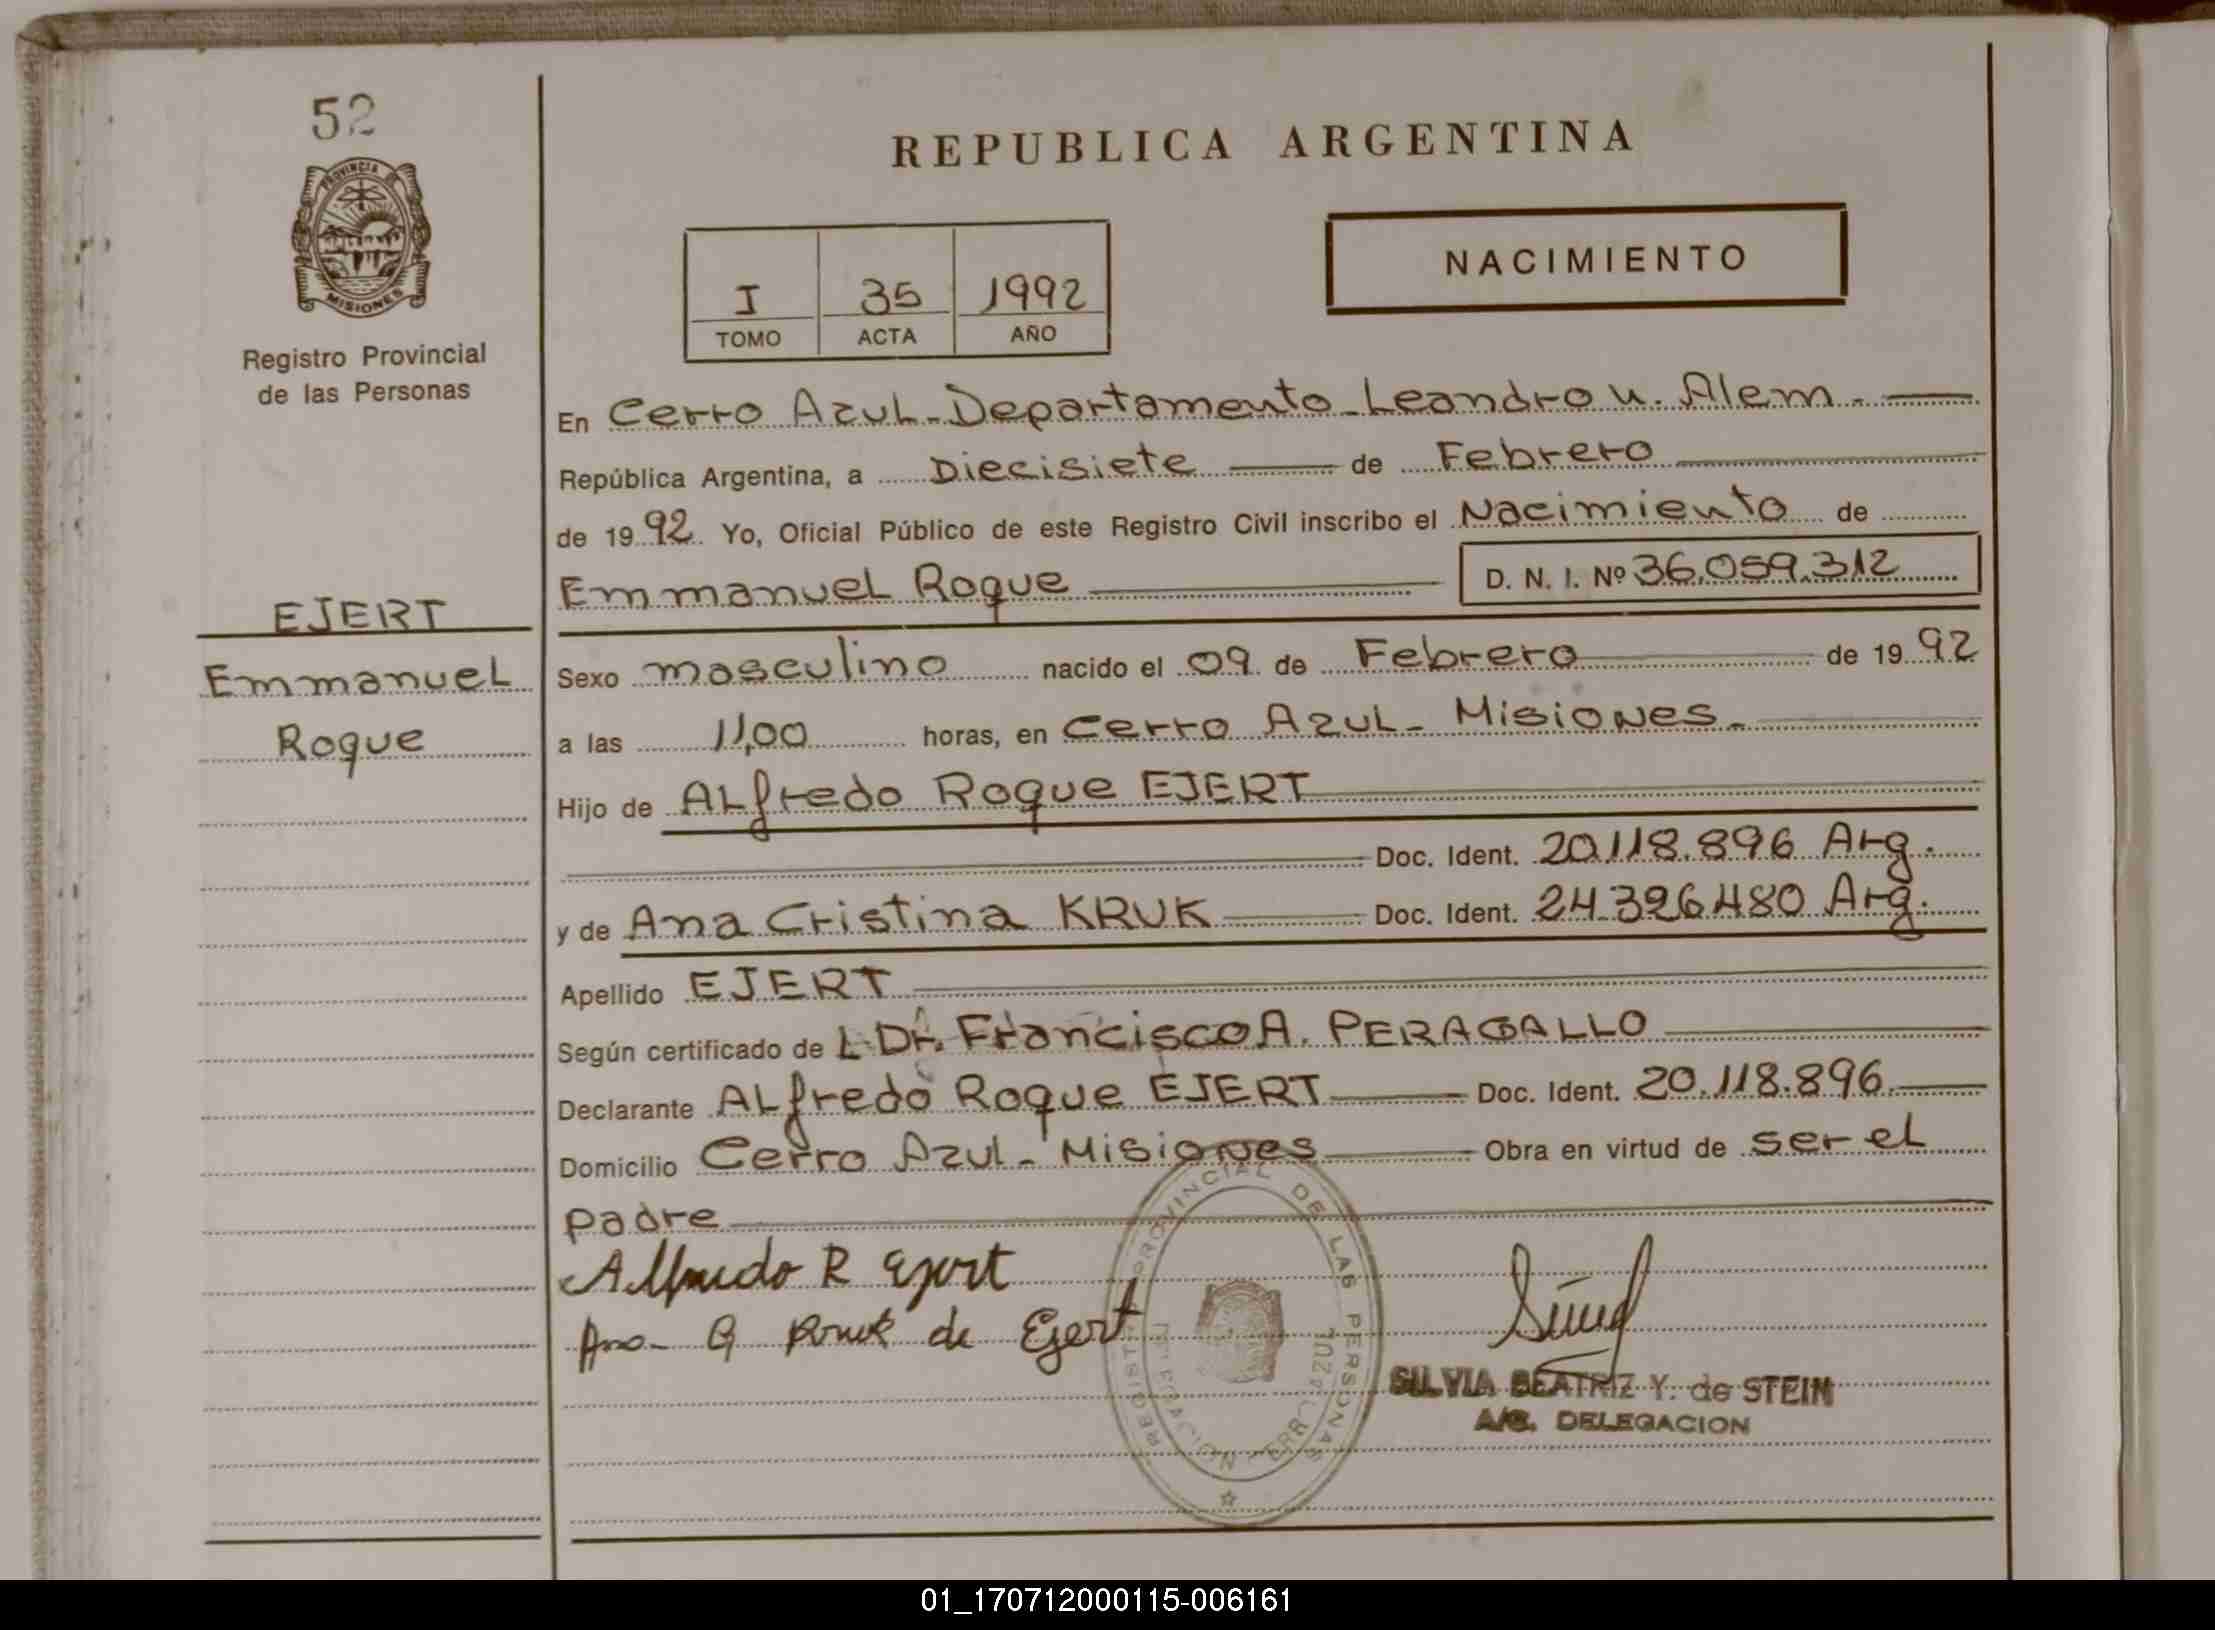 52
PROVINCIA DE
MISIONES
Registro Provincial
de las Personas
EJERT
Emmanuel
Roque
REPUBLICA ARGENTINA
I 35 1992
TOMO ACTA AÑO
NACIMIENTO
En Cerro Azul - Departamento - Leandro N. Alem. -
República Argentina, a Diecisiete de Febrero
de 1992. Yo, Oficial Público de este Registro Civil inscribo el Nacimiento de
Emmanuel Roque D. N. I. Nº 36.059.312
Sexo masculino nacido el 09 de Febrero de 1992
a las 11,00 horas, en Cerro Azul - Misiones -
Hijo de Alfredo Roque EJERT
Doc. Ident. 20.118.896 Arg.
y de Ana Cristina KRUK Doc. Ident. 24.326.480 Arg.
Apellido EJERT
Según certificado de L Dr. Francisco A. PERAGALLO
Declarante Alfredo Roque EJERT Doc. Ident. 20.118.896.
Domicilio Cerro Azul - Misiones Obra en virtud de ser el
padre
Alfredo R Ejert
Ana de Ejert
REGISTRO PROVINCIAL DE LAS PERSONAS
DELEGACION CERRO AZUL
SILVIA BEATRIZ Y. de STEIN
A/C. DELEGACION
01_170712000115-006161